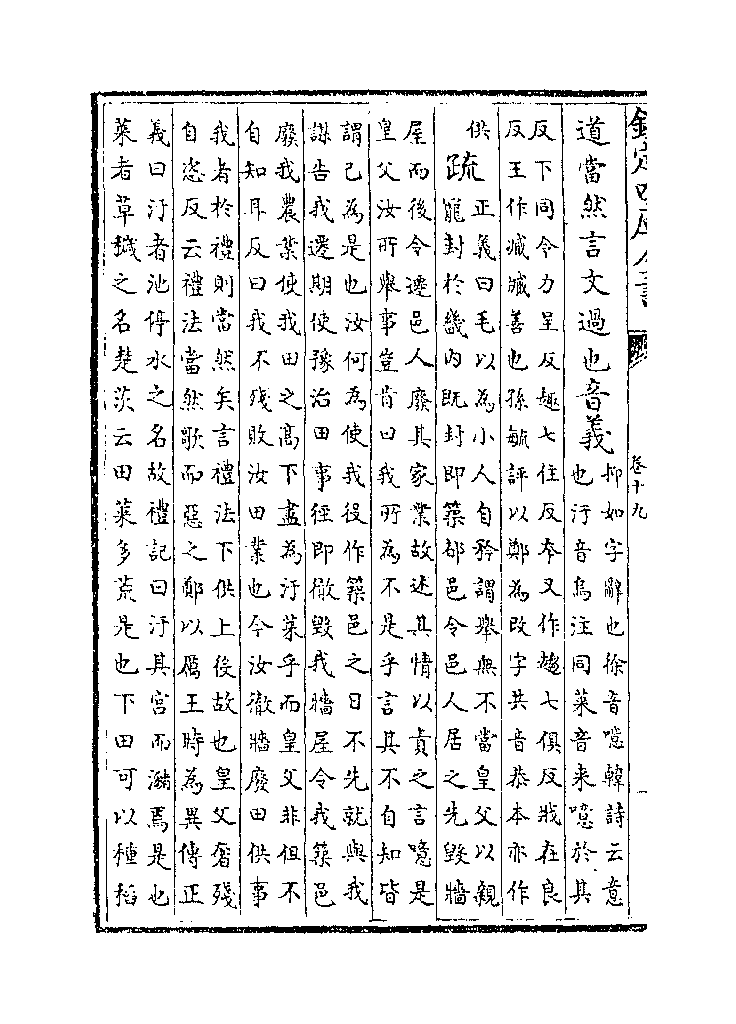 欽定四庫全書
卷十九
道當然言文過也音義
抑如字辭也徐音噫韓詩云意
也汙音烏注同萊音來噫於其
反下同令力呈反趣七住反本又作趨七俱反戕在良
反王作臧臧善也孫毓評以鄭為改字共音恭本亦作
供
疏
正義曰毛以為小人自矜謂舉無不當皇父以親
寵封於畿內既封即築都邑令邑人居之先毀牆
屋而後令遷邑人廢其家業故述其情以責之言噫是
皇父汝所舉事豈肯曰我所為不是乎言其不自知皆
謂己為是也汝何為使我役作築邑之日不先就與我
謀告我遷期使豫治田事徑即徹毀我牆屋令我築邑
廢我農業使我田之高下盡為汙萊乎而皇父非但不
自知耳反曰我不殘敗汝田業也今汝徹牆廢田供事
我者於禮則當然矣言禮法下供上役故也皇父奢殘
自恣反云禮法當然歌而惡之鄭以厲王時為異傳正
義曰汙者池停水之名故禮記曰汙其宮而瀦焉是也
萊者草穢之名楚茨云田萊多荒是也下田可以種稻